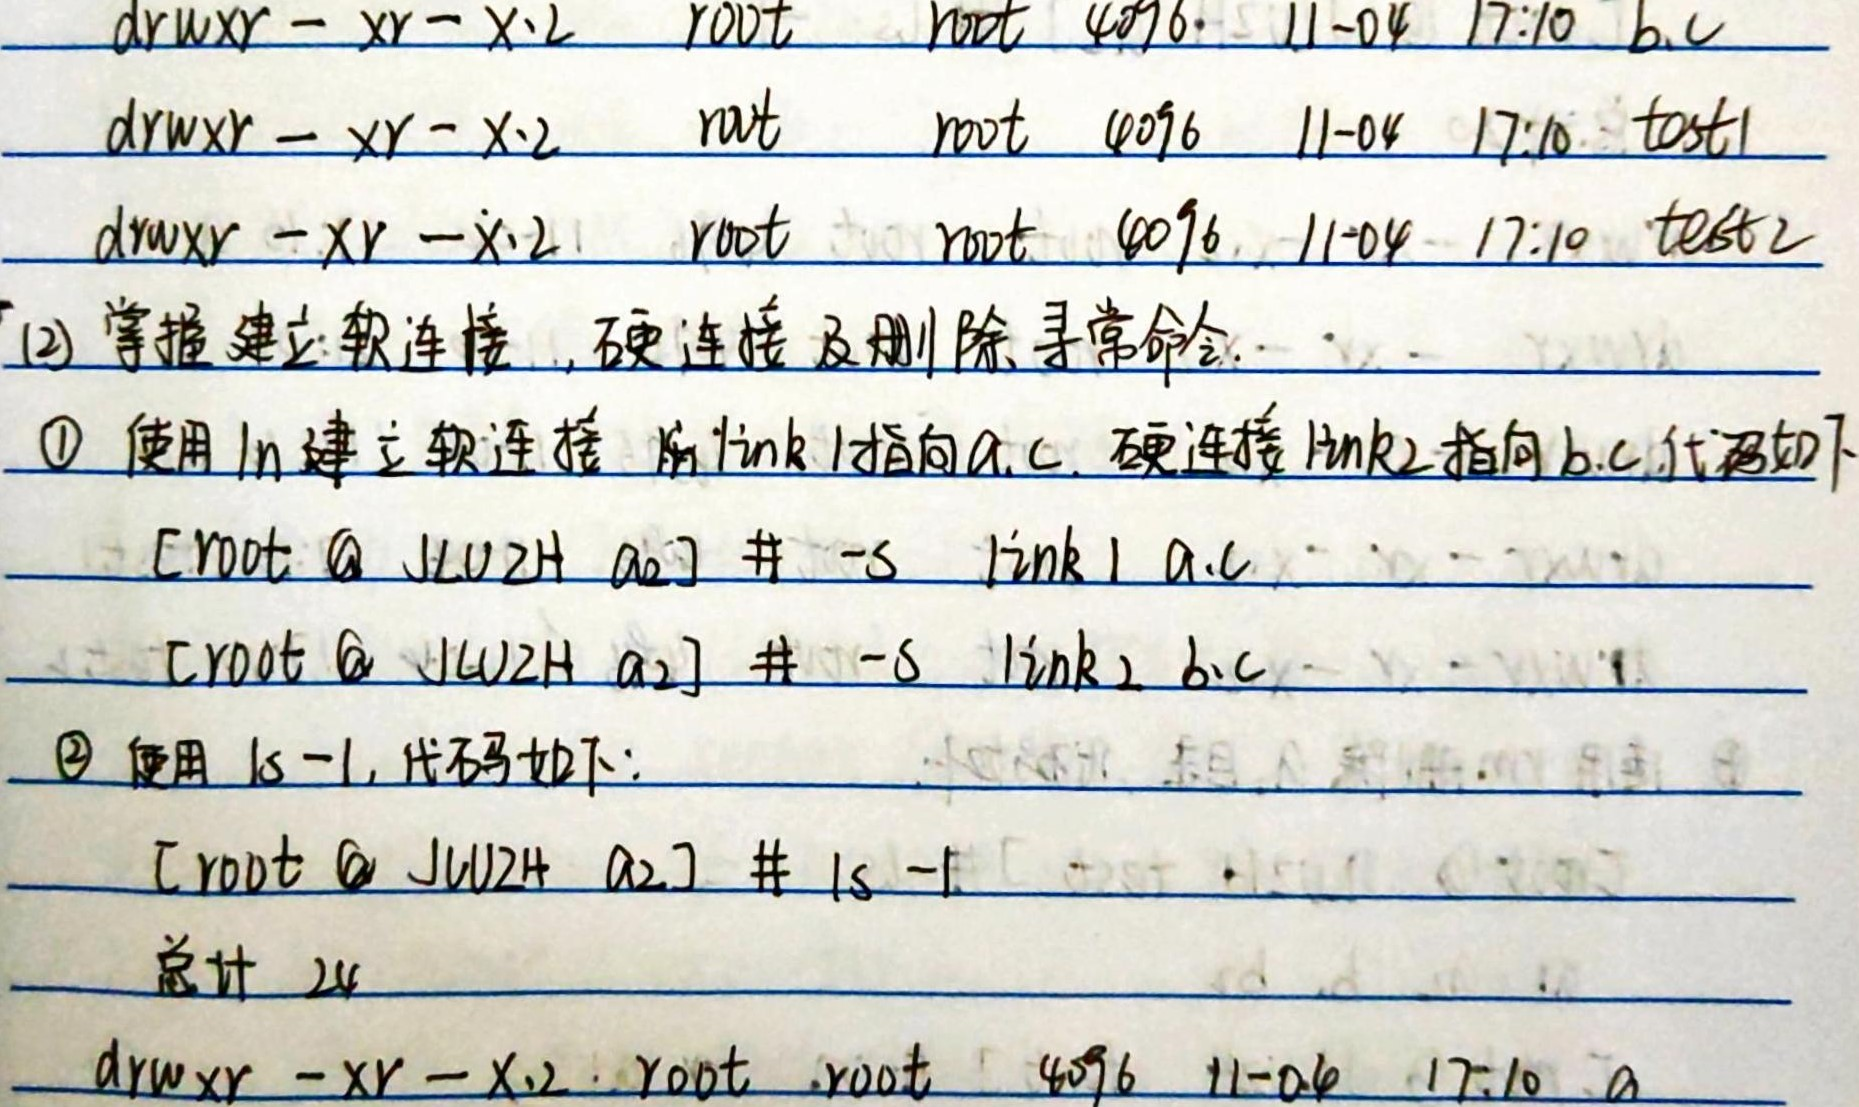 drwxr - xr - x.2 root root 4096. 11-04 17:10 b.c
drwxr - xr - x.2 root root 4096 11-04 17:10 test1
drwxr - xr - x.2 root root 4096 11-04 17:10 test2
(2) 掌握建立软连接，硬连接及删除寻常命令.
① 使用 ln 建立软连接 link1指向a.c. 硬连接link2指向b.c.代码如下
[root @ JLUZH a2] # -s link1 a.c
[root @ JLUZH a2] # -s link2 b.c
② 使用 ls -l, 代码如下:
[root @ JLUZH a2] # ls -l
总计 24
drwxr - xr - x.2. root root 4096 11-04 17:10 a